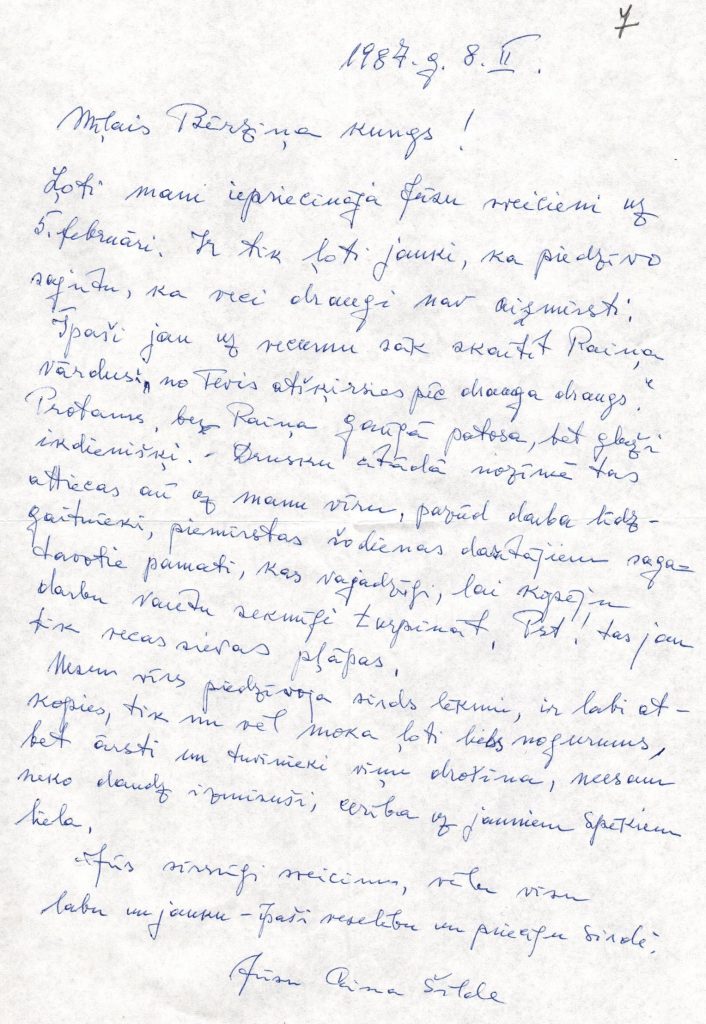 7
1987. g. 8. II.
Mīļais Bērziņa kungs!
Ļoti mani iepriecināja Jūsu sveicieni uz
5. februāri. Ir tik ļoti jauki, ka piedzīvo
sajūtu, ka veci draugi nav aizmirsti.
Īpaši jau uz vecumu sāk skaitīt Raiņa
vārdus: „no Tevis atšķirsies pēc drauga draugs."
Protams, bez Raiņa gaŗā patosa, bet gluži
ikdienišķi. - Drusku tādā nozīmē tas
attiecas arī uz manu vīru, pazūd darba līdz-
gaitnieki, piemirstas šodienas darītājiem saga-
tavotie pamati, kas vajadzīgi, lai kopēju
darbu varētu sekmīgi turpināt. Pst! tas jau
tik vecas sievas pļāpas.
Nesen vīrs piedzīvoja sirds lēkmi, ir labi at-
kopies, tik nu vēl moka ļoti liels nogurums,
bet ārsti un tuvinieki viņu drošina, neesam
neko daudz izmisuši, cerība uz jauniem spēkiem
liela.
Jūs sirsnīgi sveicinu, vēlu visu
labu un jauku - īpaši veselību un prieku sirdī.
Jūsu Šilde